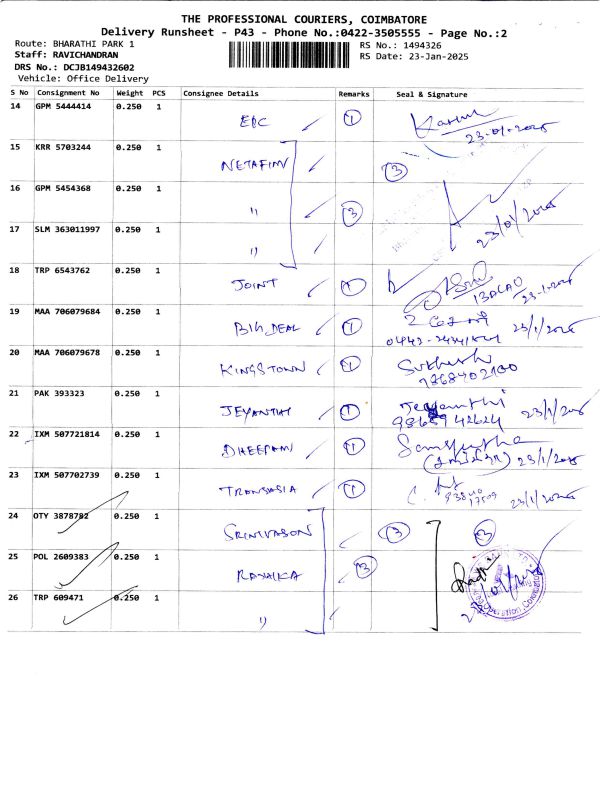 THE PROFESSIONAL COURIERS, COIMBATORE
Delivery Runsheet - P43 - Phone No.:0422-3505555 - Page No.:2
Route: BHARATHI PARK 1
RS No.: 1494326
Staff: RAVICHANDRAN
RS Date: 23-Jan-2025
DRS No.: DCJB149432602
Vehicle: Office Delivery
S No Consignment No Weight PCS Consignee Details Remarks Seal & Signature
14 GPM 5444414 0.250 1 EPC 1
23-01-2025
15 KRR 5703244 0.250 1 NETAFIM 3
16 GPM 5454368 0.250 1 " 3
23/01/2025
17 SLM 363011997 0.250 1 "
18 TRP 6543762 0.250 1 JOINT 1 23-1-2025
19 MAA 706079684 0.250 1 BIG DEAL 1 23/1/2025
20 MAA 706079678 0.250 1 KINGSTOWN 1
21 PAK 393323 0.250 1 JEYANTHI 1 Jeyanthi 23/1/2025
22 IXM 507721814 0.250 1 DHEEPAM 1 23/1/2025
23 IXM 507702739 0.250 1 TRANSASIA 1 23/1/2025
24 OTY 3878782 0.250 1 SRINIVASAN 3 3
25 POL 2609383 0.250 1 3
26 TRP 609471 0.250 1 "